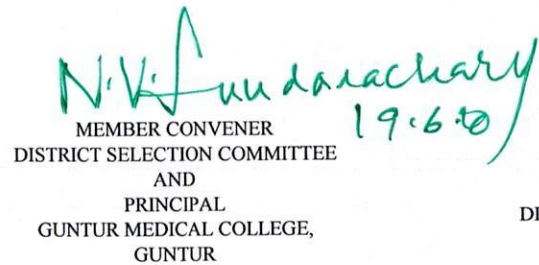 N.V. Sundarachary
MEMBER CONVENER
DISTRICT SELECTION COMMITTEE
AND
PRINCIPAL
GUNTUR MEDICAL COLLEGE,
GUNTUR